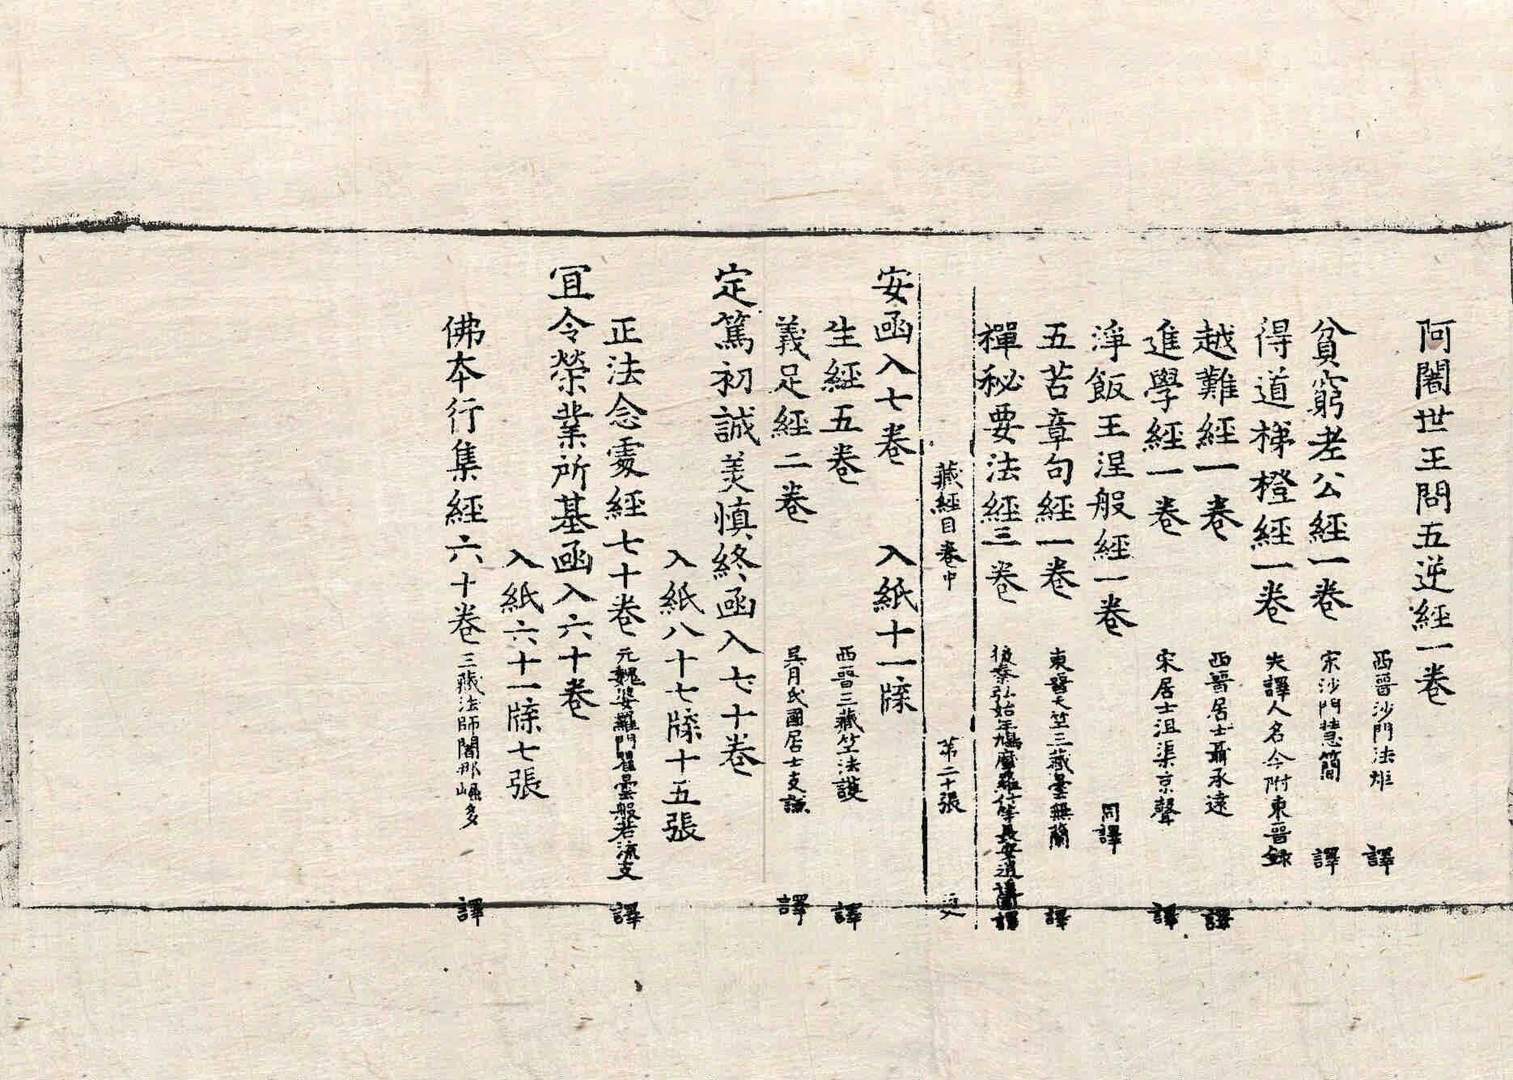 阿闍世王問五逆經一卷
西晉沙門法炬 譯
貧窮老公經一卷 宋沙門慧簡 譯
得道梯橙經一卷 失譯人名今附東晉錄
越難經一卷 西晉居士聶承遠 譯
進學經一卷 宋居士沮渠京聲 譯
淨飯王涅般經一卷 同譯
五苦章句經一卷 東晉天竺三藏曇無蘭 譯
禪秘要法經三卷 後秦弘始年鳩摩羅什等長安逍遙園譯
藏經目卷中 第二十張
安函入七卷 入紙十一牒
生經五卷 西晉三藏竺法護 譯
義足經二卷 吳月氏國居士支謙 譯
定篤初誠美慎終函入七十卷
入紙八十七牒十五張
正法念處經七十卷 元魏婆羅門瞿曇般若流支 譯
宜令榮業所基函入六十卷
入紙六十一牒七張
佛本行集經六十卷 三藏法師闍那崛多 譯